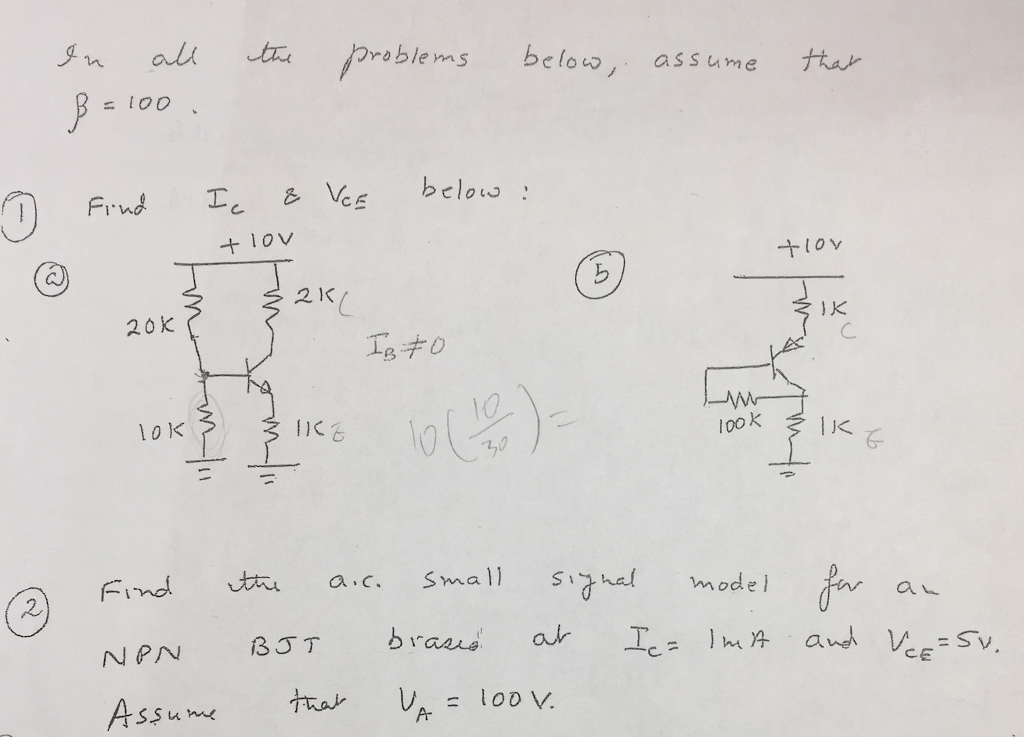 In all the problems below, assume that
β = 100.
① Find Ic & VCE below:
+10V
ⓐ
2K C
20K
IB ≠ 0
10K
1K E
10(10/30) =
ⓑ
+10V
1K
C
100K
1K E
② Find the a.c. small signal model for an
NPN BJT biased at Ic = 1mA and VCE = 5V.
Assume that VA = 100V.